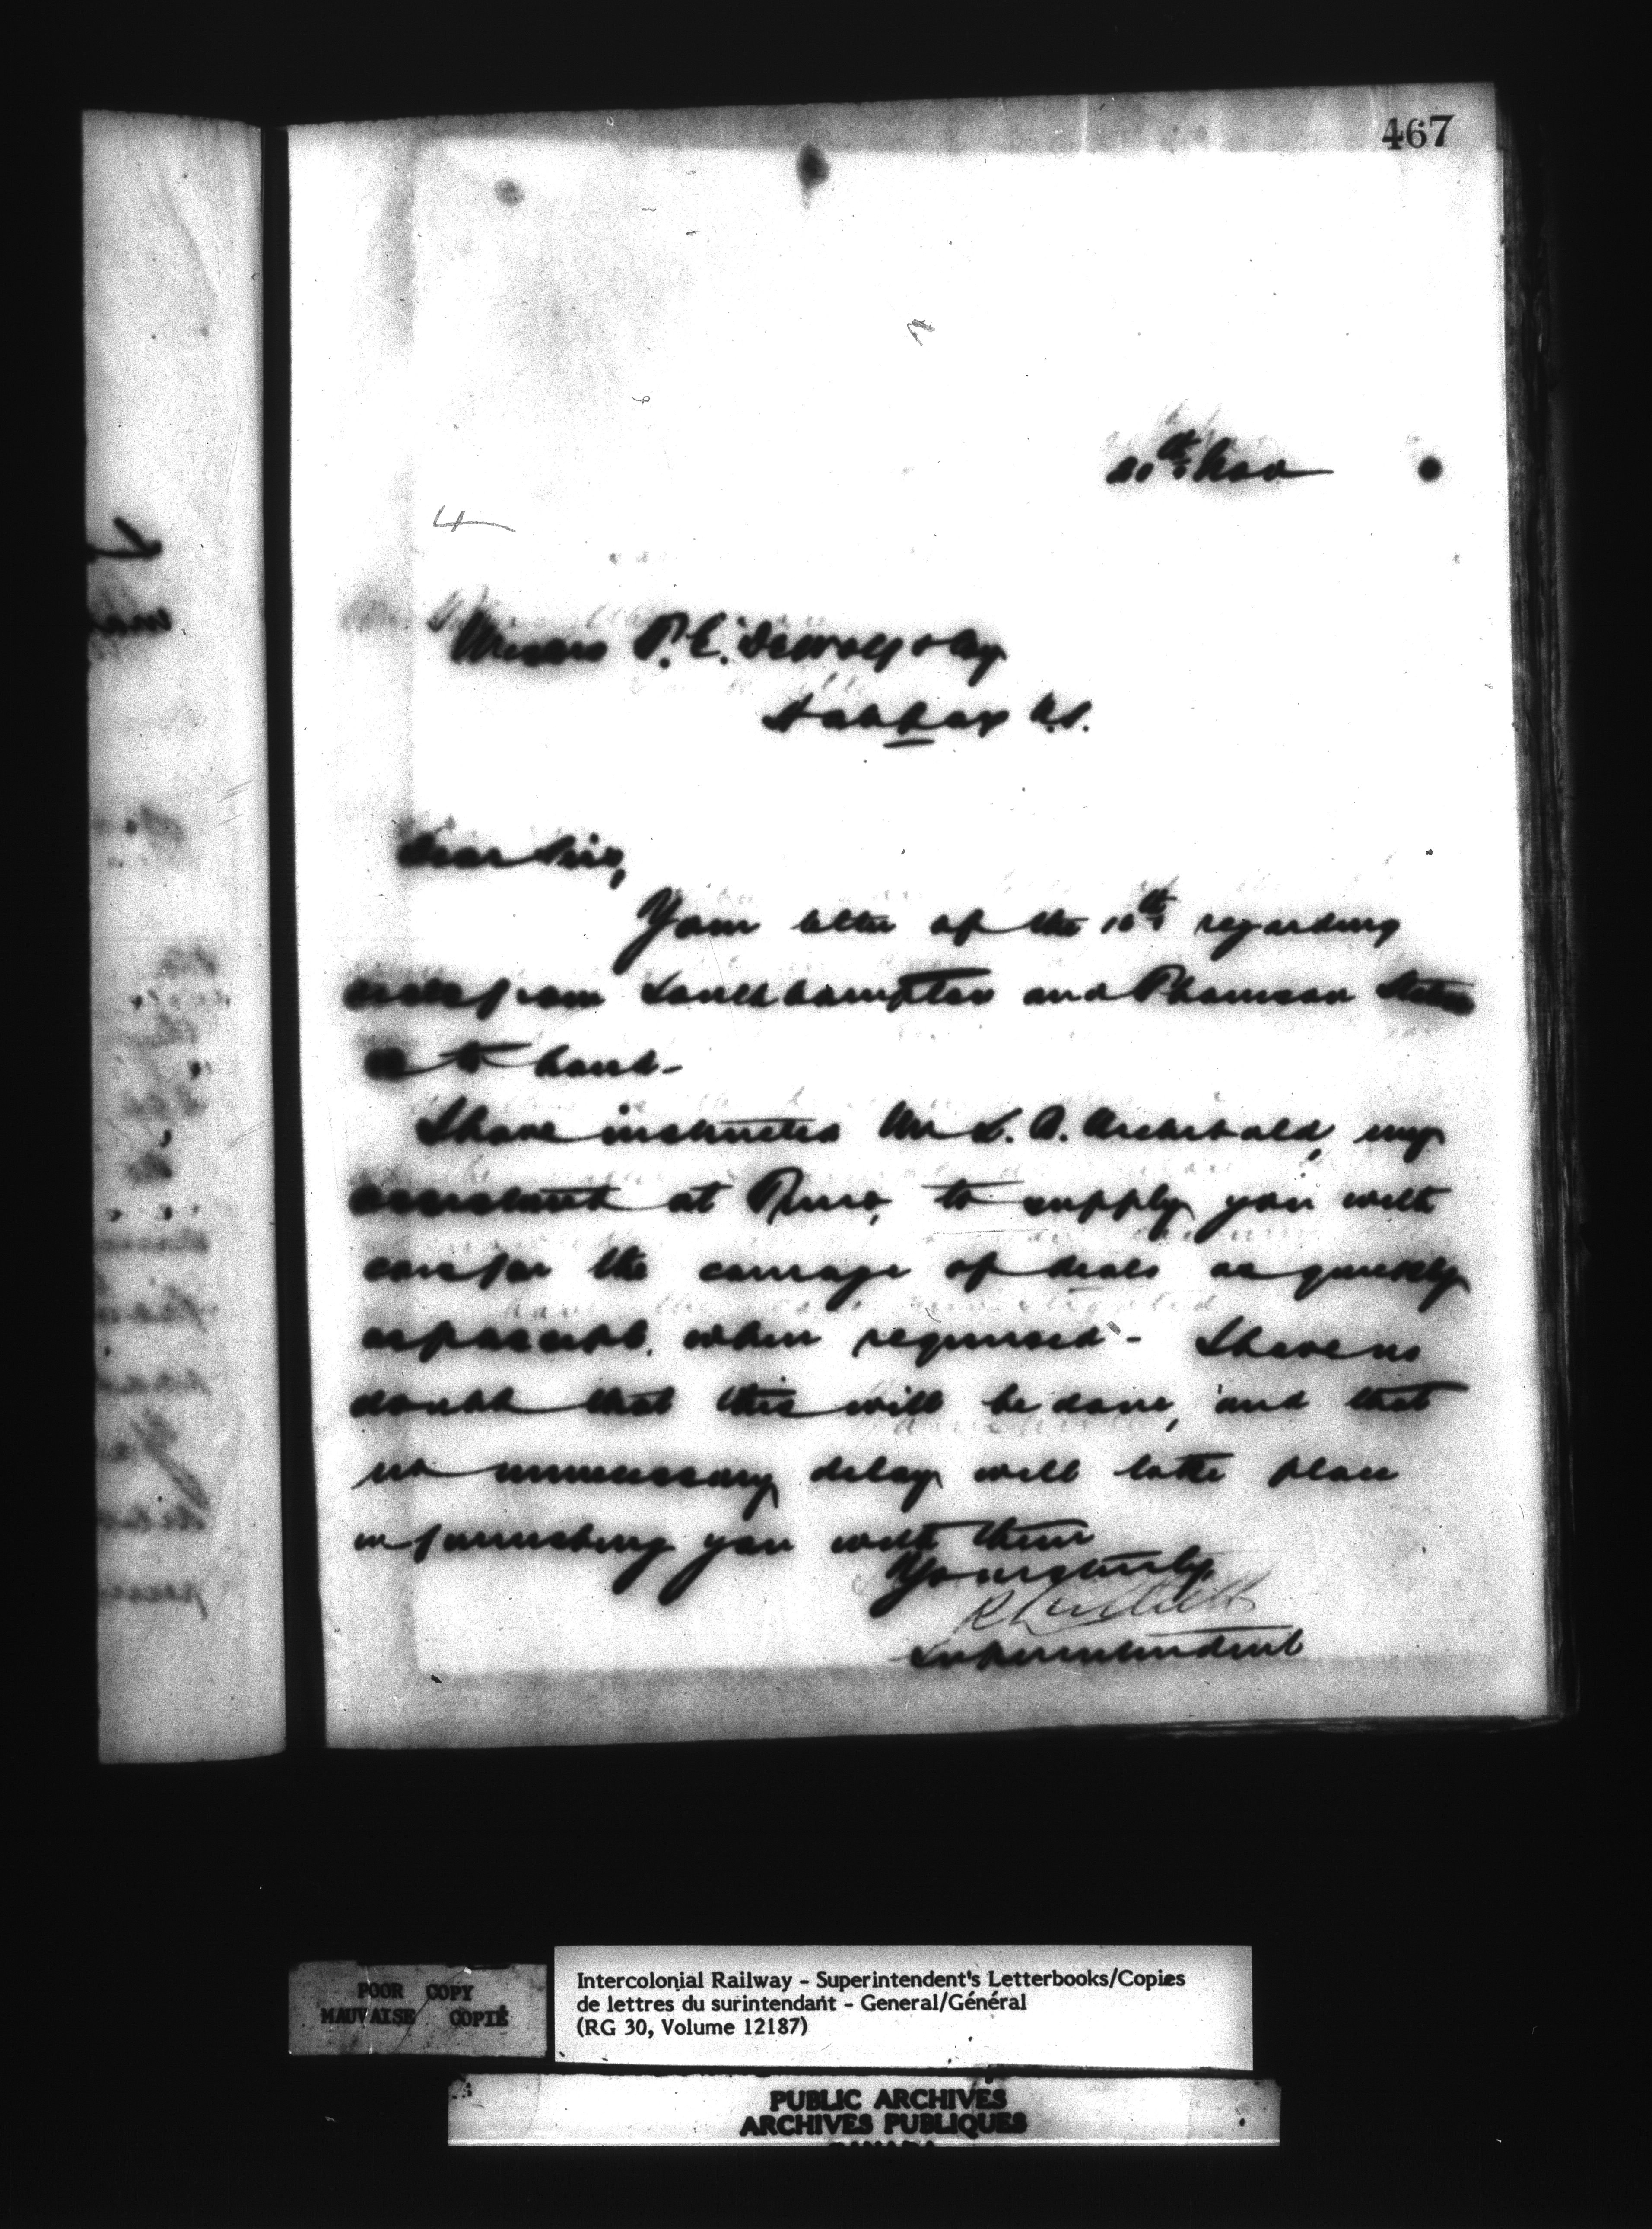 467
20th Nov
Messrs P.C. DeWolf & Coy
Halifax N.S.
Dear Sirs,
Your letter of the 10th regarding
deals from Southhampton and Thomson Station
is to hand -
I have instructed Mr L. A. Archibald, my
assistant at Truro, to supply you with
cars for the carriage of deals as quickly
as possible, when required - I have no
doubt that this will be done, and that
no unnecessary delay will take place
in furnishing you with them
Yours truly,
R Luttrell
Superintendent
POOR COPY
MAUVAISE COPIE
Intercolonial Railway - Superintendent's Letterbooks/Copies
de lettres du surintendant - General/Général
(RG 30, Volume 12187)
PUBLIC ARCHIVES
ARCHIVES PUBLIQUES
CANADA